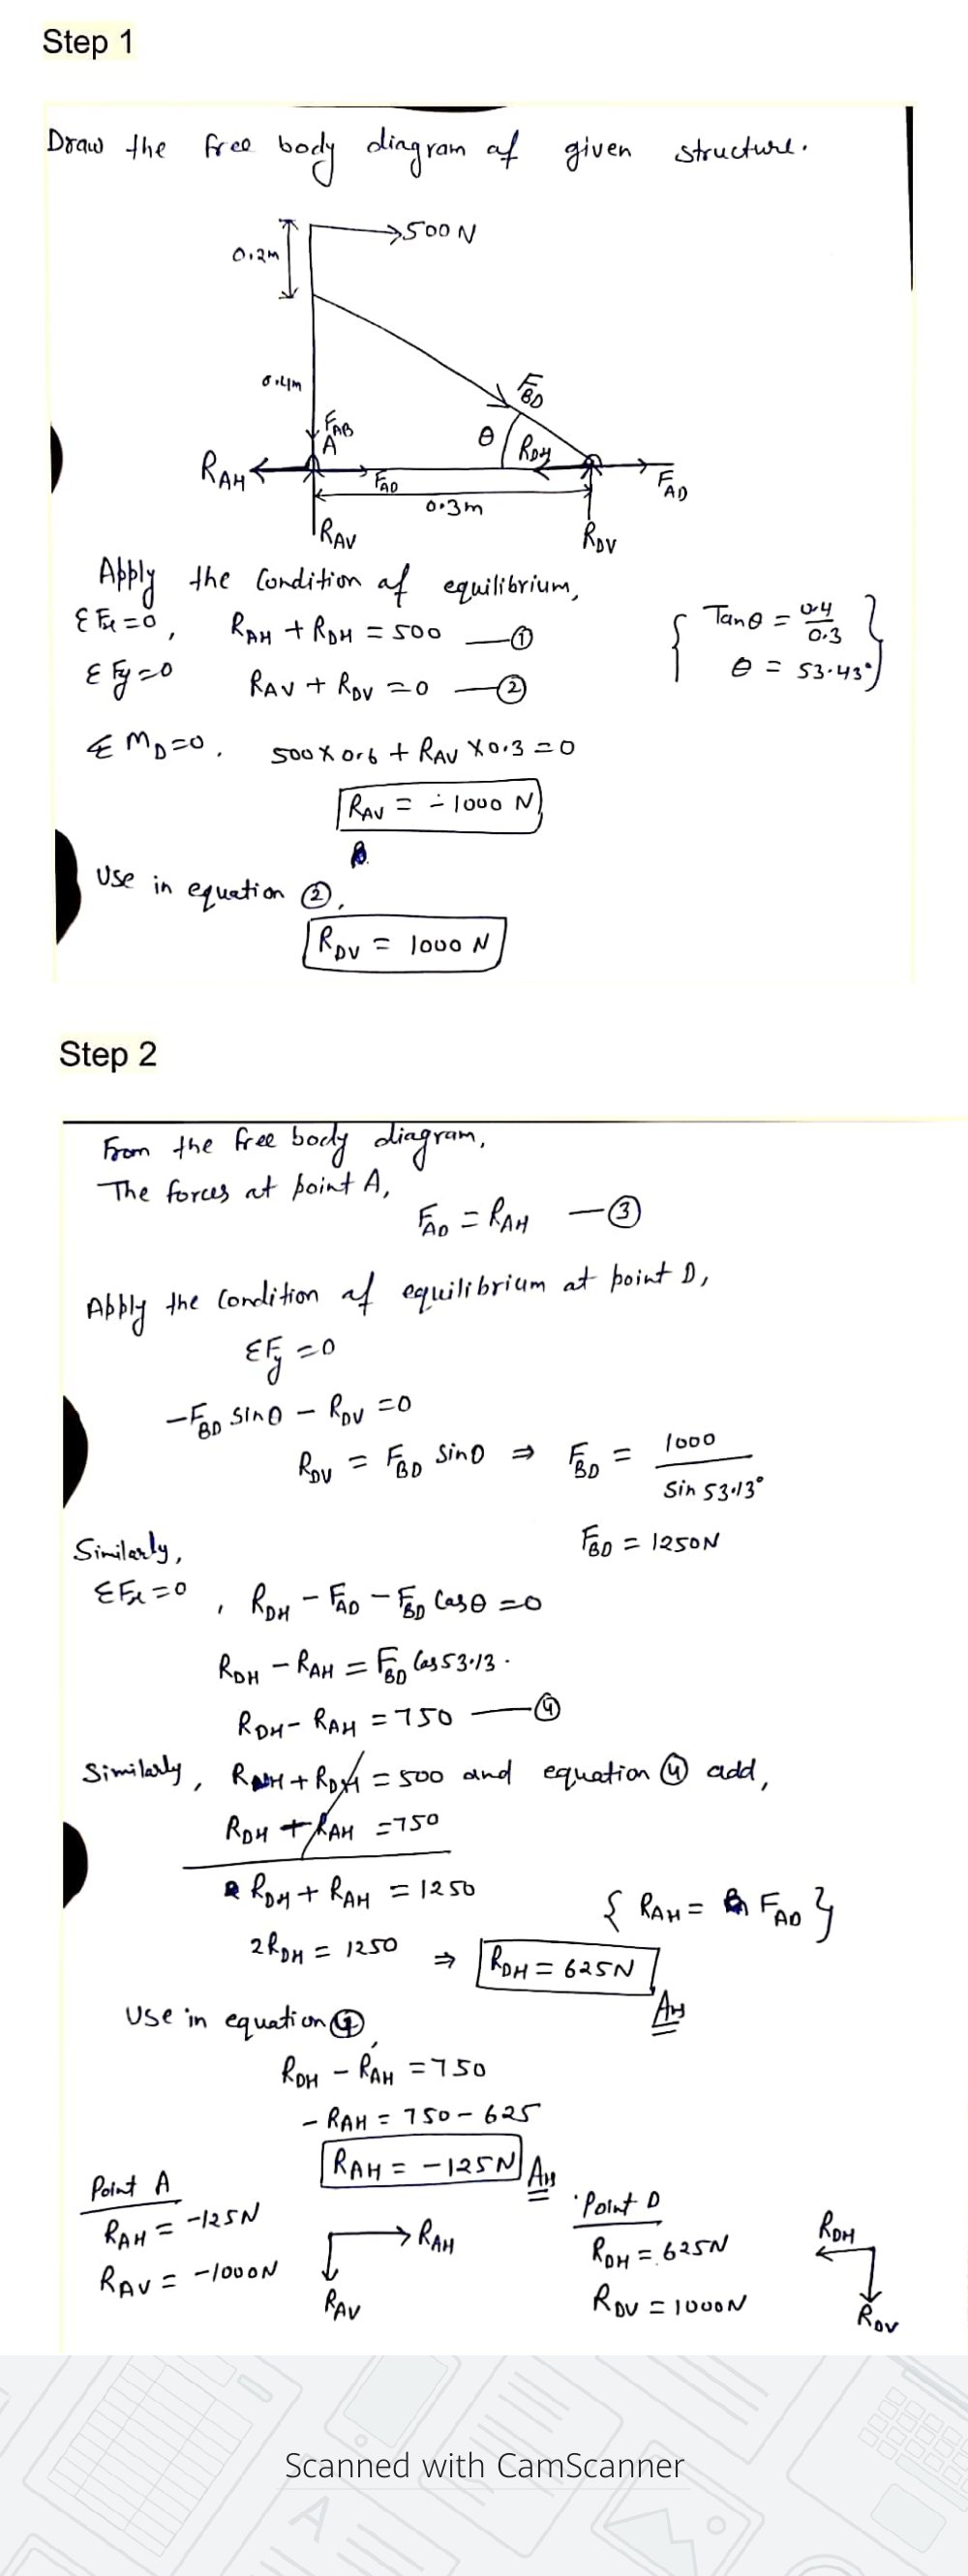 Step 1
Draw the free body diagram of given structure.
500 N
0.2m
0.4m
F_BD
F_AB
A
θ
R_DH
R_AH
F_AD
F_AD
0.3m
R_AV
R_DV
Apply the Condition of equilibrium,
ΣFx=0, R_AH + R_DH = 500 —①
{ Tanθ = 0.4/0.3
θ = 53.43° }
ΣFy=0 R_AV + R_DV =0 —②
ΣM_D=0, 500 x 0.6 + R_AV x 0.3 = 0
R_AV = -1000 N
Use in equation ②,
R_DV = 1000 N
Step 2
From the free body diagram,
The forces at point A,
F_AD = R_AH —③
Apply the Condition of equilibrium at point D,
ΣFy =0
-F_BD sinθ - R_DV =0
R_DV = F_BD sinθ ⇒ F_BD = 1000/Sin 53.13°
F_BD = 1250N
Similarly,
ΣFx=0, R_DH - F_AD - F_BD Cosθ =0
R_DH - R_AH = F_BD Cos 53.13.
R_DH - R_AH = 750 —④
Similarly, R_AH + R_DH = 500 and equation ④ add,
R_DH + R_AH =750
R_DH + R_AH = 1250
{ R_AH = F_AD }
2R_DH = 1250 ⇒ R_DH = 625N
Ans
Use in equation ④,
R_DH - R_AH =750
- R_AH = 750 - 625
R_AH = -125N Ans
Point A
R_AH = -125N
R_AV = -1000N
R_AH
R_AV
Point D
R_DH = 625N
R_DV = 1000N
R_DH
R_DV
Scanned with CamScanner